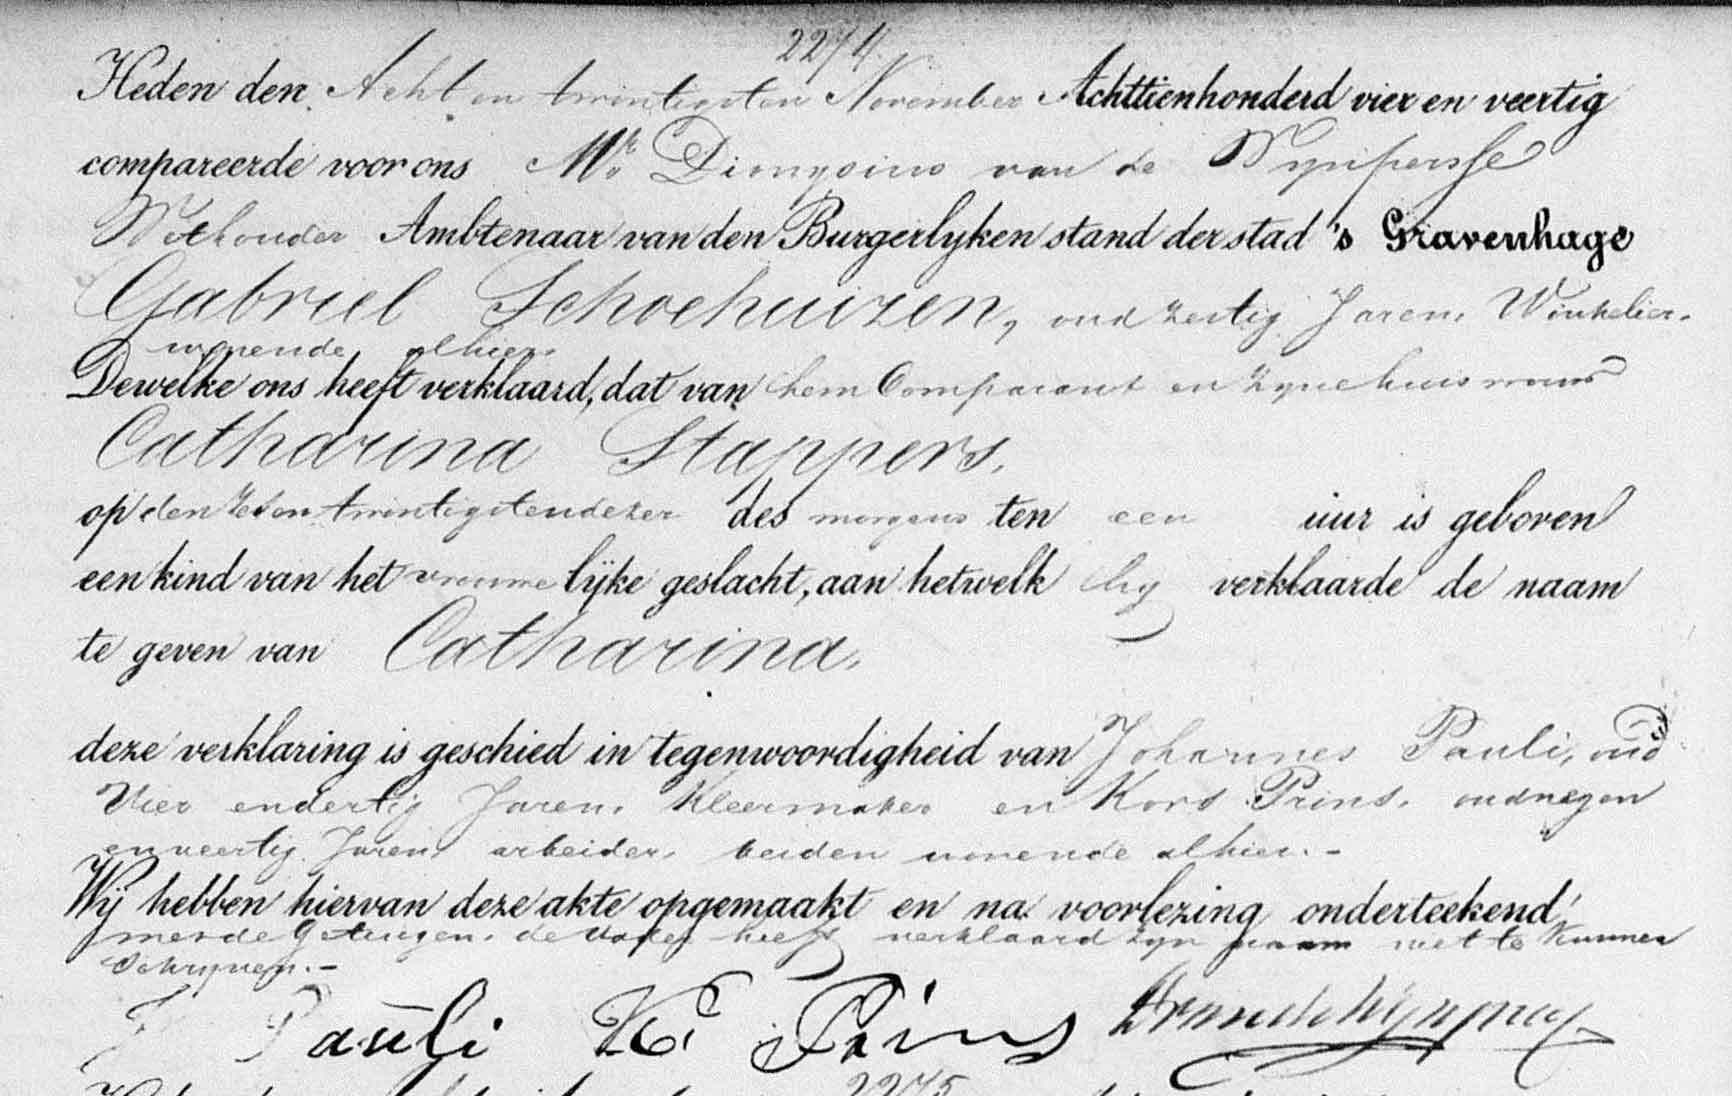 2274.
Heden den Acht en twintigsten November Achttienhonderd vier en veertig
compareerde voor ons Mr. Dionysius van de Wynpersse
Wethouder Ambtenaar van den Burgerlyken stand der stad 's Gravenhage
Gabriel Schoehuizen, oud zestig Jaren, Winkelier.
wonende alhier.
Dewelke ons heeft verklaard, dat van hem Comparant en zyne huisvrouw
Catharina Stappers.
op den zes en twintigsten dezer des morgens ten een uur is geboren
een kind van het vrouwelijke geslacht, aan hetwelk hy verklaarde de naam
te geven van Catharina.
deze verklaring is geschied in tegenwoordigheid van Johannes Pauli, oud
Vier en dertig Jaren, Kleermaker en Kors Prins, oud negen
en veertig Jaren, arbeider, beiden wonende alhier.-
Wij hebben hiervan deze akte opgemaakt en na voorlezing onderteekend,
met de Getuigen. de vader heeft verklaard zyn naam niet te kunnen
Schryven.-
J Pauli K Prins DvandeWynpersse
2275